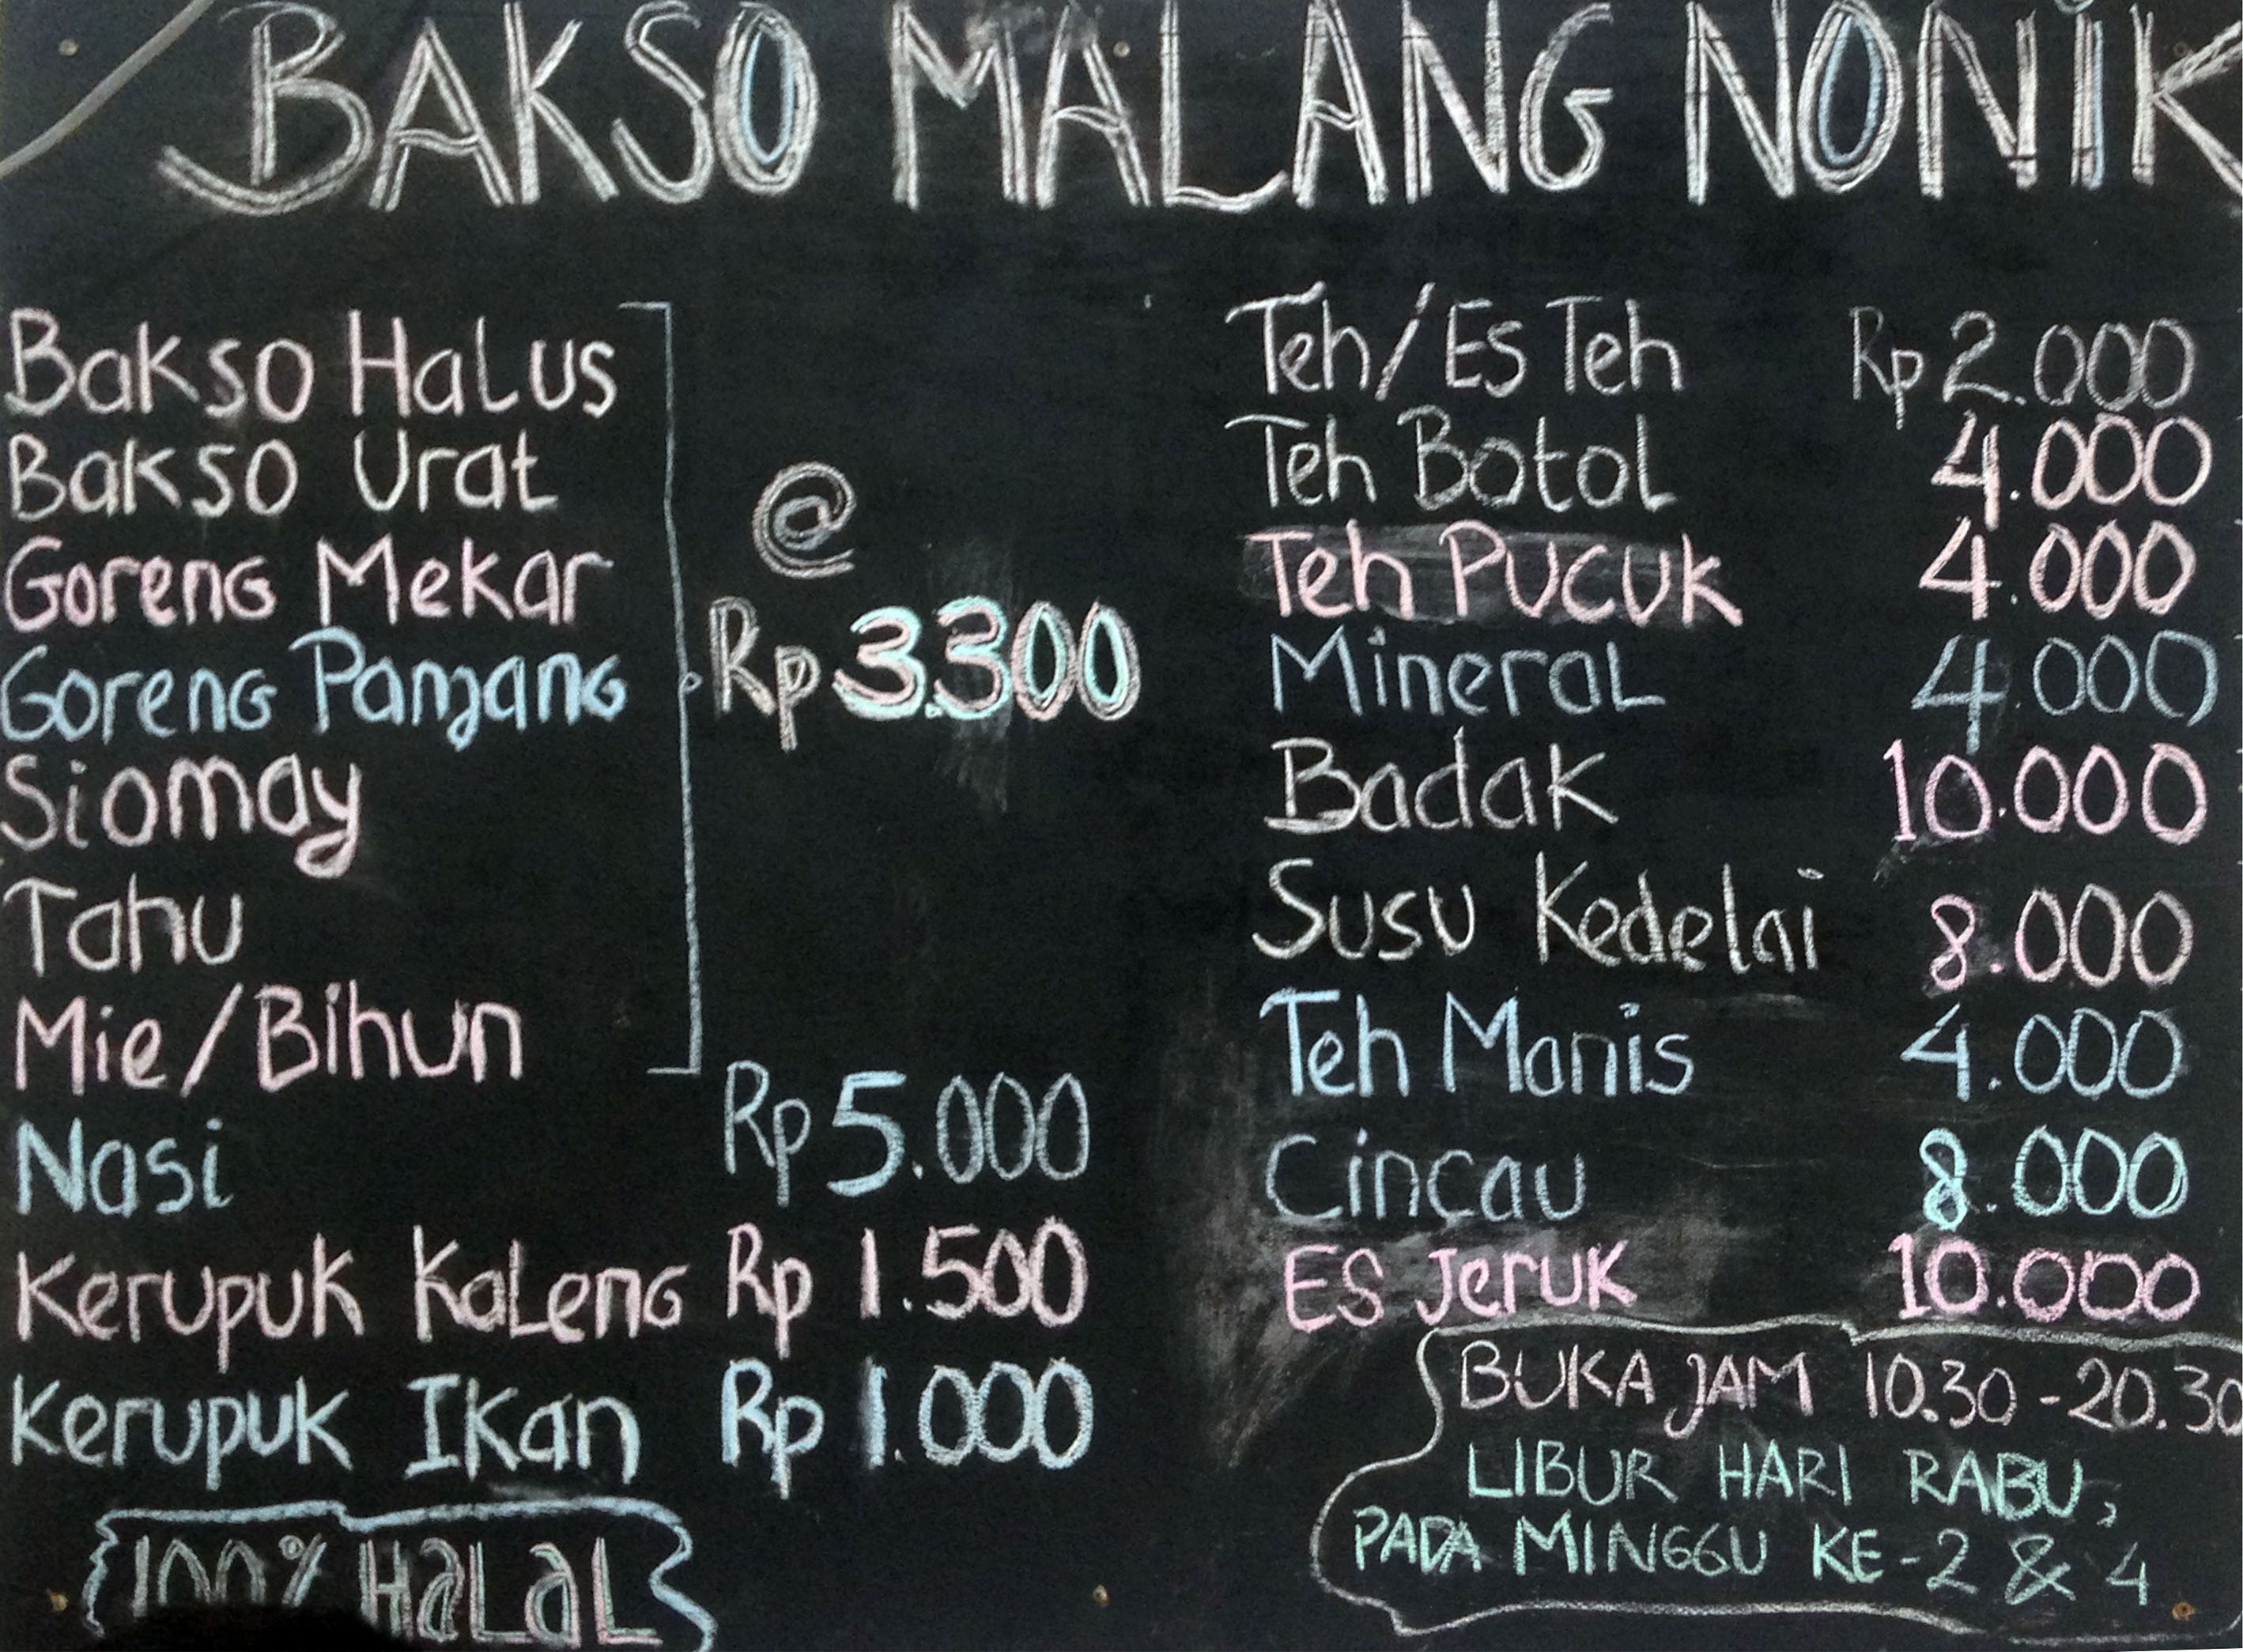 BAKSO MALANG NONIK
Bakso Halus
Bakso Urat
Goreng Mekar
Goreng Panjang
Siomay
Tahu
Mie/Bihun
@
Rp 3.300
Nasi Rp 5.000
Kerupuk Kaleng Rp 1.500
Kerupuk Ikan Rp 1.000
100% HALAL
Teh/Es Teh Rp 2.000
Teh Botol 4.000
Teh Pucuk 4.000
Mineral 4.000
Badak 10.000
Susu Kedelai 8.000
Teh Manis 4.000
Cincau 8.000
ES Jeruk 10.000
BUKA JAM 10.30 - 20.30
LIBUR HARI RABU,
PADA MINGGU KE-2 & 4